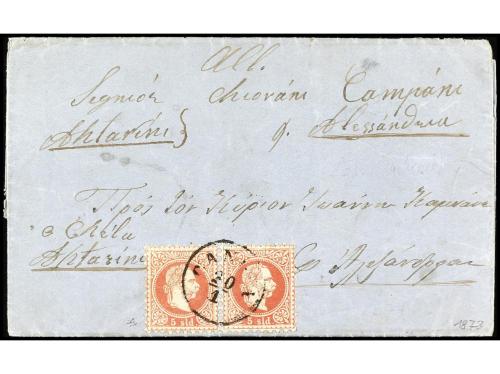 All.
Segniór Chiováni Campáni
Ahtarini} q. Alessándria
Πρὸς τὸν Κύριον Ἰωάννη Καμπάνι
Ahtarini Ἀλεξάνδρειαν
CAN
20
5 sld 5 sld
1873